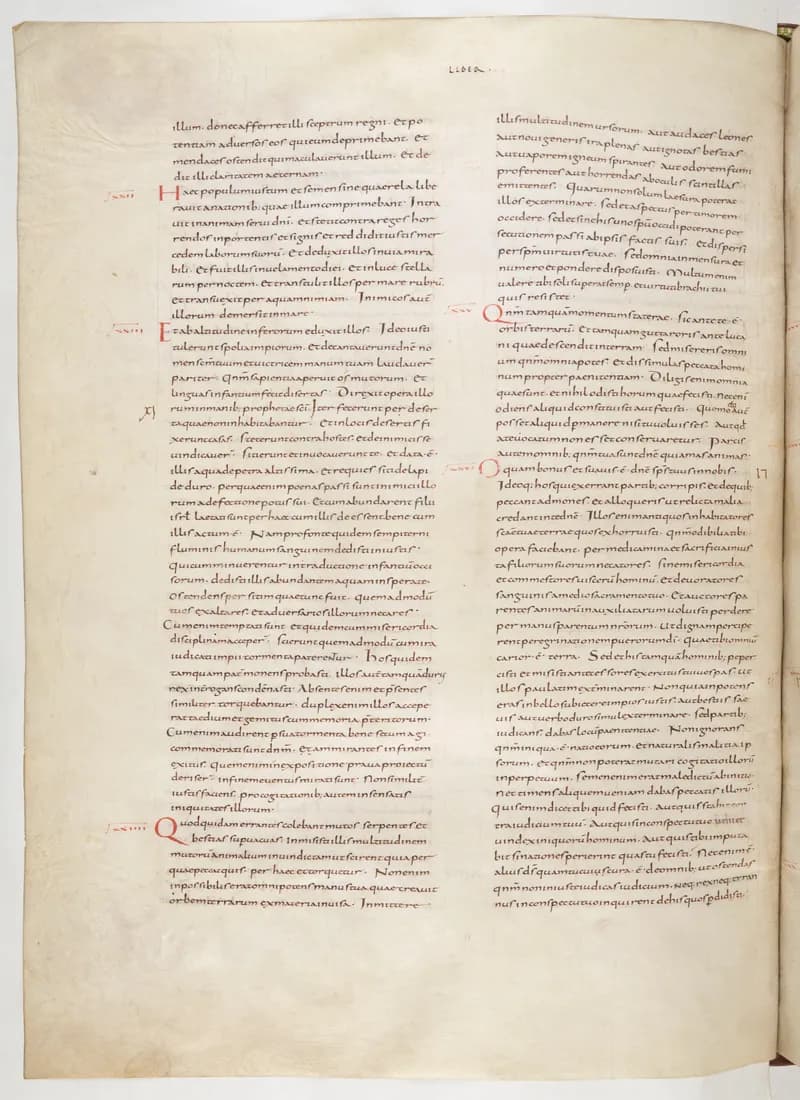 LIBER
illum. donec afferret illi sceptrum regni. Et po
tentiam adversos eos qui eum deprimebant. Et
mendaces ostendit qui maculaverunt illum. Et de
dit illi claritatem aeternam.
xxii Haec populum iustum et semen sine quaerela libe
ravit a nationib; quae illum comprimebant. Intra
vit in animam servi dni. et stetit contra reges hor
rendos in portentis et signis et reddidit iustis mer
cedem laborum suorū. Et deduxit illos in via mira
bili. Et fuit illis in velamento diei. et in luce stella
rum per noctem. Et transtulit illos per mare rubrū.
et transvexit per aquam nimiam. Inimicos autē
illorum demersit in mare.
xxiii Et ab altitudine inferorum eduxit illos. Ideo iusti
tulerunt spolia impiorum. et decantaverunt dnē no
men scm tuum et victricem manum tuam laudaver
pariter. Qnm sapientia aperuit os mutorum. Et
linguas infantium fecit disertas. Direxit opera illo
rum in manib; prophetae sci. Iter fecerunt per deser
ta quae non inhabitabantur. Et in locis desertis fi
xerunt casas. Steterunt contra hostes. et de inimicis se
vindicaver. Sitierunt et invocaverunt te. et data ē
illis aqua de petra altissima. et requies sitis de lapi
de duro. per quae enim poenas passi sunt inimici illo
rum a defectione potus sui. Et cum abundarent filii
isrl. laetati sunt per haec cum illis deessent. bene cum
illis actum ē. Nam pro fonte quidem sempiterni
fluminis humanum sanguinem dedisti iniustis.
Qui cum minuerentur in traductione infantiū occi
sorum. dedisti illis abundantem aquam insperate.
Ostendens per sitim quae tunc fuit. quemadmodū
tuos exaltares. et adversarios illorum necares.
Cum enim temptati sunt. et quidem cum misericordia
disciplinam acceper. scierunt quemadmodū cum ira
iudicati impii tormenta paterentur. Hos quidem
tamquam pater monens probasti. illos autē tamquam durus
rex interrogans condemnasti. Absentes enim et psentes
similiter torquebantur. duplex enim illos accepe
rat taedium et gemitus cum memoria pteritorum.
Cum enim audirent p sua tormenta bene secum agi.
commemorati sunt dnm. Et ammirantes in finem
exitus. Quem enim in expositione prava proiectū
deriser. in finem eventus mirati sunt. Non similit
iustis faciens. pro cogitationib; autem insensatis
iniquitates illorum.
xxiiii Quod quidam errantes colebant mutos serpentes et
bestias supvacuas. Inmisisti illis multitudinem
mutorū animalium in vindictam ut scirent quia per
quae peccat quis. per haec et torquetur. Non enim
inpossibilis erat omnipotens manus tua quae creavit
orbem terrarum ex materia invisa. Inmittere
illis multitudinem ursorum. aut audaces leones
Aut novi generis ira plenas aut ignotas bestias
Aut vaporem igneum spirantes. Aut odorem fumi
proferentes aut horrendas ab oculis scintillas
emittentes. Quarum non solum laesura poterat
illos exterminare. sed et aspectus per timorem
occidere. sed et sine his uno spū occidi poterant per
secutionem passi ab ipsis factis suis. et dispersi
per spm virtutis tuae. Sed omnia in mensura et
numero et pondere disposuisti. Multum enim
valere tibi soli superat semp. et virtuti brachii tui
quis resistet.
xxv Qnm tamquam momentum staterae. sic ante te ē
orbis terrarū. Et tamquam gutta roris antelucani
ni quae descendit in terram. Sed misereris omni
um qnm omnia potes. Et dissimulas peccata homi
num propter paenitentiam. Diligis enim omnia
quae sunt. et nihil odisti horum quae fecisti. nec eni
odiens aliquid constituisti aut fecisti. Quomodo autē
posset aliquid pmanere nisi tu voluisses. Aut qd
a te vocatum non esset conservaretur. Parcis
autem omnib; qnm tua sunt dnē qui amas animas.
xxvi O quam bonus et suavis ē dnē sps tuus in nobis.
Ideoq; hos qui exerrant partib; corripis. et de quib;
peccant admones. et alloqueris ut relicta malitia
credant in te dnē. Illos enim antiquos inhabitatores
scae tuae terrae quos exhorruisti. qnm odibilia tibi
opera faciebant. per medicamina et sacrificia inius
ta filiorum suorum necatores. sine misericordia
et commestores viscerū hominū. Et devoratores
sanguinis a medio sacramento tuo. Et auctores pa
rentes animarū inauxiliatarum voluisti perdere
per manus parentum nrorum. Ut dignam percipe
rent peregrinationem puerorum dī. Quae tibi omniū
carior ē terra. Sed et his tamquā hominib; peper
cisti et misisti antecessores exercitus tui vespas. ut
illos paulatim exterminarent. Non quia inpotens
eras in bello subicere impios iustis. Aut bestiis sae
vis. aut verbo duro simul exterminare. sed partib;
iudicans. dabas locum paenitentiae. Non ignorans
qnm iniqua ē natio eorum. et naturalis malitia ip
sorum. et qnm non poterat mutari cogitatio illorū
in perpetuum. semen enim erat maledictū ab initio.
nec timens aliquem veniam dabas peccatis illorū.
Quis enim dicet tibi quid fecisti. Aut quis stabit con
tra iudicium tuū. Aut quis in conspectu tuo veniet
vindex iniquorū hominum. Aut quis tibi imputa
bit si nationes perierint quas tu fecisti. Nec enim ē
alius ds quam tu cui cura ē de omnib; ut ostendas
qnm non iniuste iudicas iudicium. Neq; rex neq; tyran
nus in conspectu tuo inquirent de his quos pdidisti.